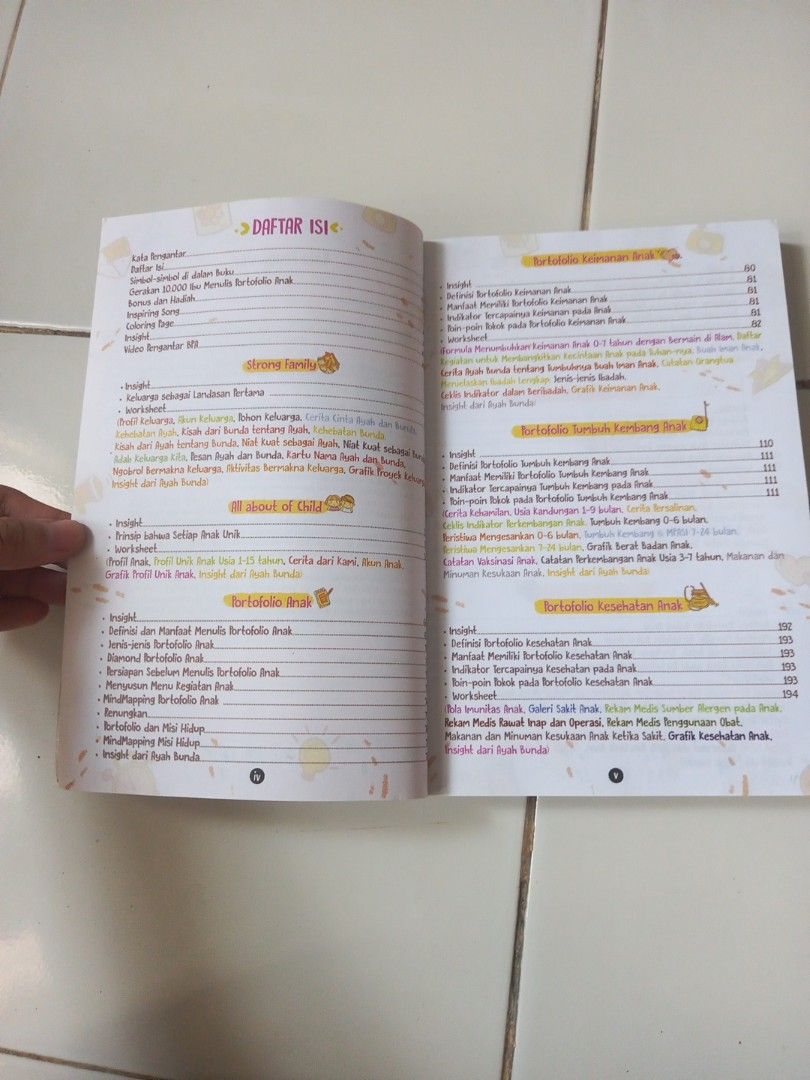 DAFTAR ISI
Kata Pengantar
Daftar Isi
Simbol-simbol di dalam Buku
Gerakan 10.000 Ibu Menulis Portofolio Anak
Bonus dan Hadiah
Inspiring Song
Coloring Page
Insight
Video Pengantar BPA
Strong Family
• Insight
• Keluarga sebagai Landasan Pertama
• Worksheet
(Profil Keluarga, Akun Keluarga, Pohon Keluarga, Cerita Cinta Ayah dan Bunda,
Kehebatan Ayah, Kisah dari Bunda tentang Ayah, Kehebatan Bunda,
Kisah dari Ayah tentang Bunda, Niat Kuat sebagai Ayah, Niat Kuat sebagai
Adab Keluarga Kita, Pesan Ayah dan Bunda, Kartu Nama Ayah dan Bunda,
Ngobrol Bermakna Keluarga, Aktivitas Bermakna Keluarga, Grafik Proyek
Insight dari Ayah Bunda)
All about of Child
• Insight
• Prinsip bahwa Setiap Anak Unik
• Worksheet
(Profil Anak, Profil Unik Anak Usia 1-15 tahun, Cerita dari Kami, Akun Anak,
Grafik Profil Unik Anak, Insight dari Ayah Bunda)
Portofolio Anak
• Insight
• Definisi dan Manfaat Menulis Portofolio Anak
• Jenis-jenis Portofolio Anak
• Diamond Portofolio Anak
• Persiapan Sebelum Menulis Portofolio Anak
• Menyusun Menu Kegiatan Anak
• MindMapping Portofolio Anak
• Renungkan
• Portofolio dan Misi Hidup
• MindMapping Misi Hidup
• Insight dari Ayah Bunda
iv
Portofolio Keimanan Anak
• Insight 80
• Definisi Portofolio Keimanan Anak 81
• Manfaat Memiliki Portofolio Keimanan Anak 81
• Indikator Tercapainya Keimanan pada Anak 81
• Poin-poin Pokok pada Portofolio Keimanan Anak 81
• Worksheet 82
(Formula Menumbuhkan Keimanan Anak 0-7 tahun dengan Bermain di Alam, Daftar
Kegiatan untuk Membangkitkan Kecintaan Anak pada Tuhan-nya, Buah Iman Anak,
Cerita Ayah Bunda tentang Tumbuhnya Buah Iman Anak, Catatan Orangtua
Menjelaskan Ibadah Lengkap Jenis-jenis Ibadah,
Ceklis Indikator dalam Beribadah, Grafik Keimanan Anak,
Insight dari Ayah Bunda)
Portofolio Tumbuh Kembang Anak
• Insight 110
• Definisi Portofolio Tumbuh Kembang Anak 111
• Manfaat Memiliki Portofolio Tumbuh Kembang Anak 111
• Indikator Tercapainya Tumbuh Kembang pada Anak 111
• Poin-poin Pokok pada Portofolio Tumbuh Kembang Anak 111
(Cerita Kehamilan, Usia Kandungan 1-9 bulan, Cerita Persalinan,
Ceklis Indikator Perkembangan Anak, Tumbuh Kembang 0-6 bulan,
Peristiwa Mengesankan 0-6 bulan, Tumbuh Kembang & MPASI 7-24 bulan,
Peristiwa Mengesankan 7-24 bulan, Grafik Berat Badan Anak,
Catatan Vaksinasi Anak, Catatan Perkembangan Anak Usia 3-7 tahun, Makanan dan
Minuman Kesukaan Anak, Insight dari Ayah Bunda)
Portofolio Kesehatan Anak
• Insight 192
• Definisi Portofolio Kesehatan Anak 193
• Manfaat Memiliki Portofolio Kesehatan Anak 193
• Indikator Tercapainya Kesehatan pada Anak 193
• Poin-poin Pokok pada Portofolio Kesehatan Anak 193
• Worksheet 194
(Pola Imunitas Anak, Galeri Sakit Anak, Rekam Medis Sumber Alergen pada Anak,
Rekam Medis Rawat Inap dan Operasi, Rekam Medis Penggunaan Obat,
Makanan dan Minuman Kesukaan Anak Ketika Sakit, Grafik Kesehatan Anak,
Insight dari Ayah Bunda)
v